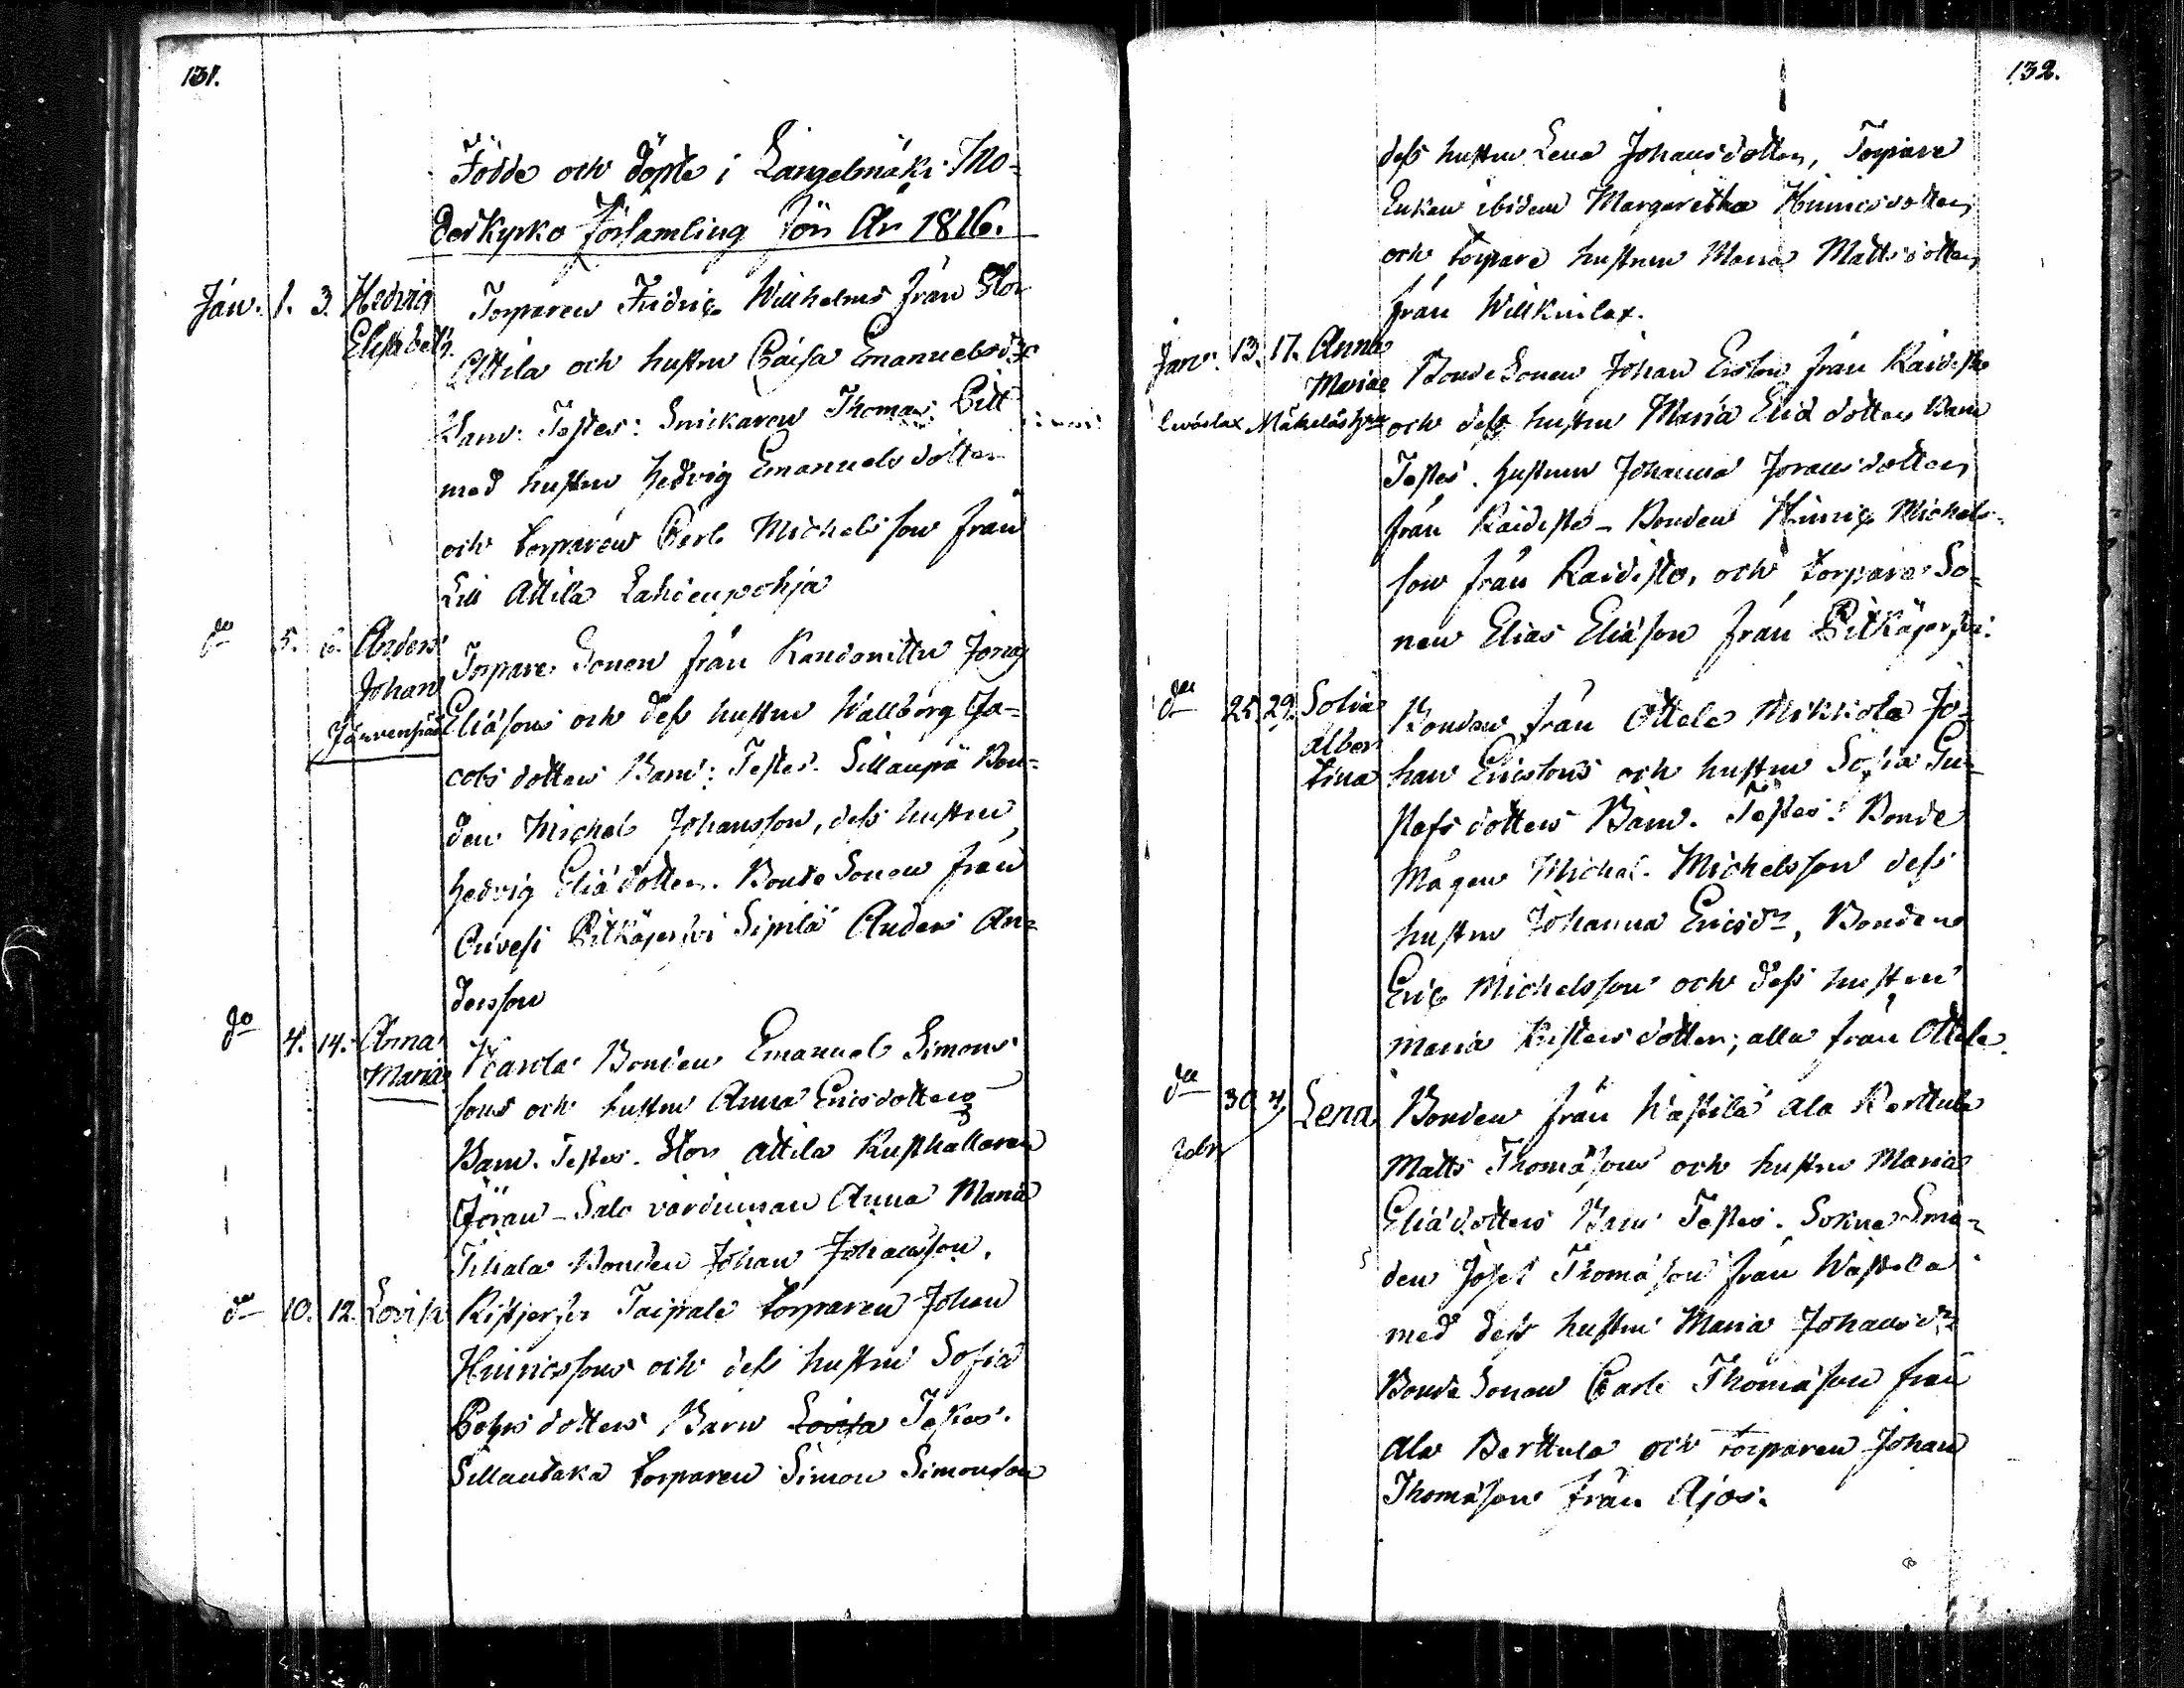 131.
Födde och döpte i Längelmäki Mo-
derkyrko Församling för År 1816.
Jan. 1. 3. Hedvig Elisabeth. Torparen Fridric Willhelms från Stor
Attila och hustru Caisa Emanuelsdrs
Barn: Testes: Snickaren Thomas
med hustru Hedvig Emanuels dotter
och torparen Carl Michelsson från
Lill Attila Lahdenpohja
do 5. 6. Anders Johan Torpare Sonen från Jonas
Järvenpää Eliäsons och dess hustru Wallborg Ja-
cobs dotters Barn: Testes. Sillanpä Bon-
den Michel Johansson, dess hustru,
Hedvig Eliä dotter. Bonde Sonen från
Orivesi Pitkäjerfvi Sipilä Anders An-
dersson
do 4. 14. Anna Maria Bonden Emanuel Simons
sons och hustru Anna Ericsdotters
Barn. Testes. Stor Attila Rusthållaren
Jöran - Salo värdinnan Anna Maria
Tihala Bonden Johan Johansson.
do 10. 12. Lovisa Taipale torparen Johan
Hinricssons och dess hustru Sofia
Pehrs dotters Barn Lovisa Testes.
torparen Simon Simonson
132.
dess hustru Lena Johansdotter, Torpare
Enkan ibidem Margaretha Hinricsdotter
och torpare hustrun Maria Mattsdotter
från Willkinlax.
Jan. 13. 17. Anna Maria Bonde Sonen Johan Ersson från Raidisto
och dess hustru Maria Eliä dotters Barn
Testes. hustrun Johanna Joransdotter
från Raidisto - Bonden Hinric Michels-
son från Raidisto, och torpare So-
nen Elias Eliäson från Pitkäjerfvi.
do 25. 29. Sofia Albertina Bonden från Attila Mikkola Jo-
han Ericsons och hustru Sofia Gu-
stafs dotters Barn. Testes: Bonde
Mågen Michel Michelsson dess
hustru Johanna Ericsdr, Bonden
Eric Michelsson och dess hustru
Maria dotter; alla från Attila.
do 30. 4. Febr Lena Bonden från Västilä Ala Perttula
Matts Thomäsons och hustru Maria
Eliä dotters Barn Testes. Sokne Sme-
den Josef Thomäson från Västilä
med dess hustru Maria Johansdr
Bonde Sonen Carl Thomäson från
Ala Berttula och torparen Johan
Thomäson från Ajos.